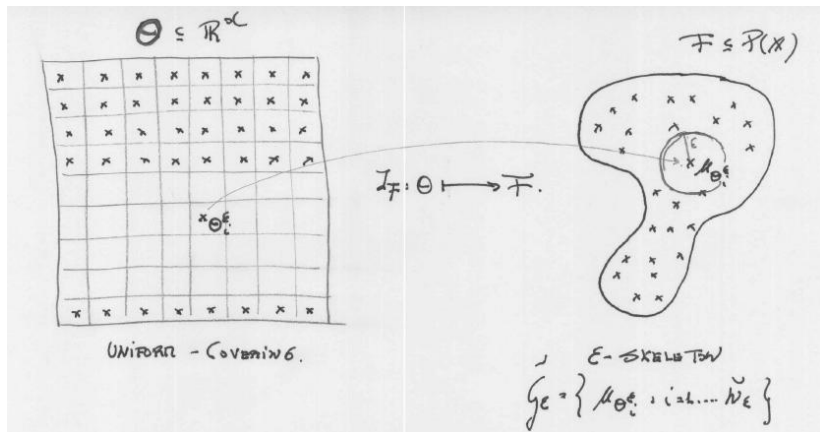 Θ ⊆ ℝ^d
F ⊆ P(X)
ε
μ_θᵢ^ε
I_F : Θ ⟼ F.
θᵢ^ε
UNIFORM - COVERING.
ε - SKELETON
G_ε = { μ_θᵢ^ε , i=1,.... N_ε }